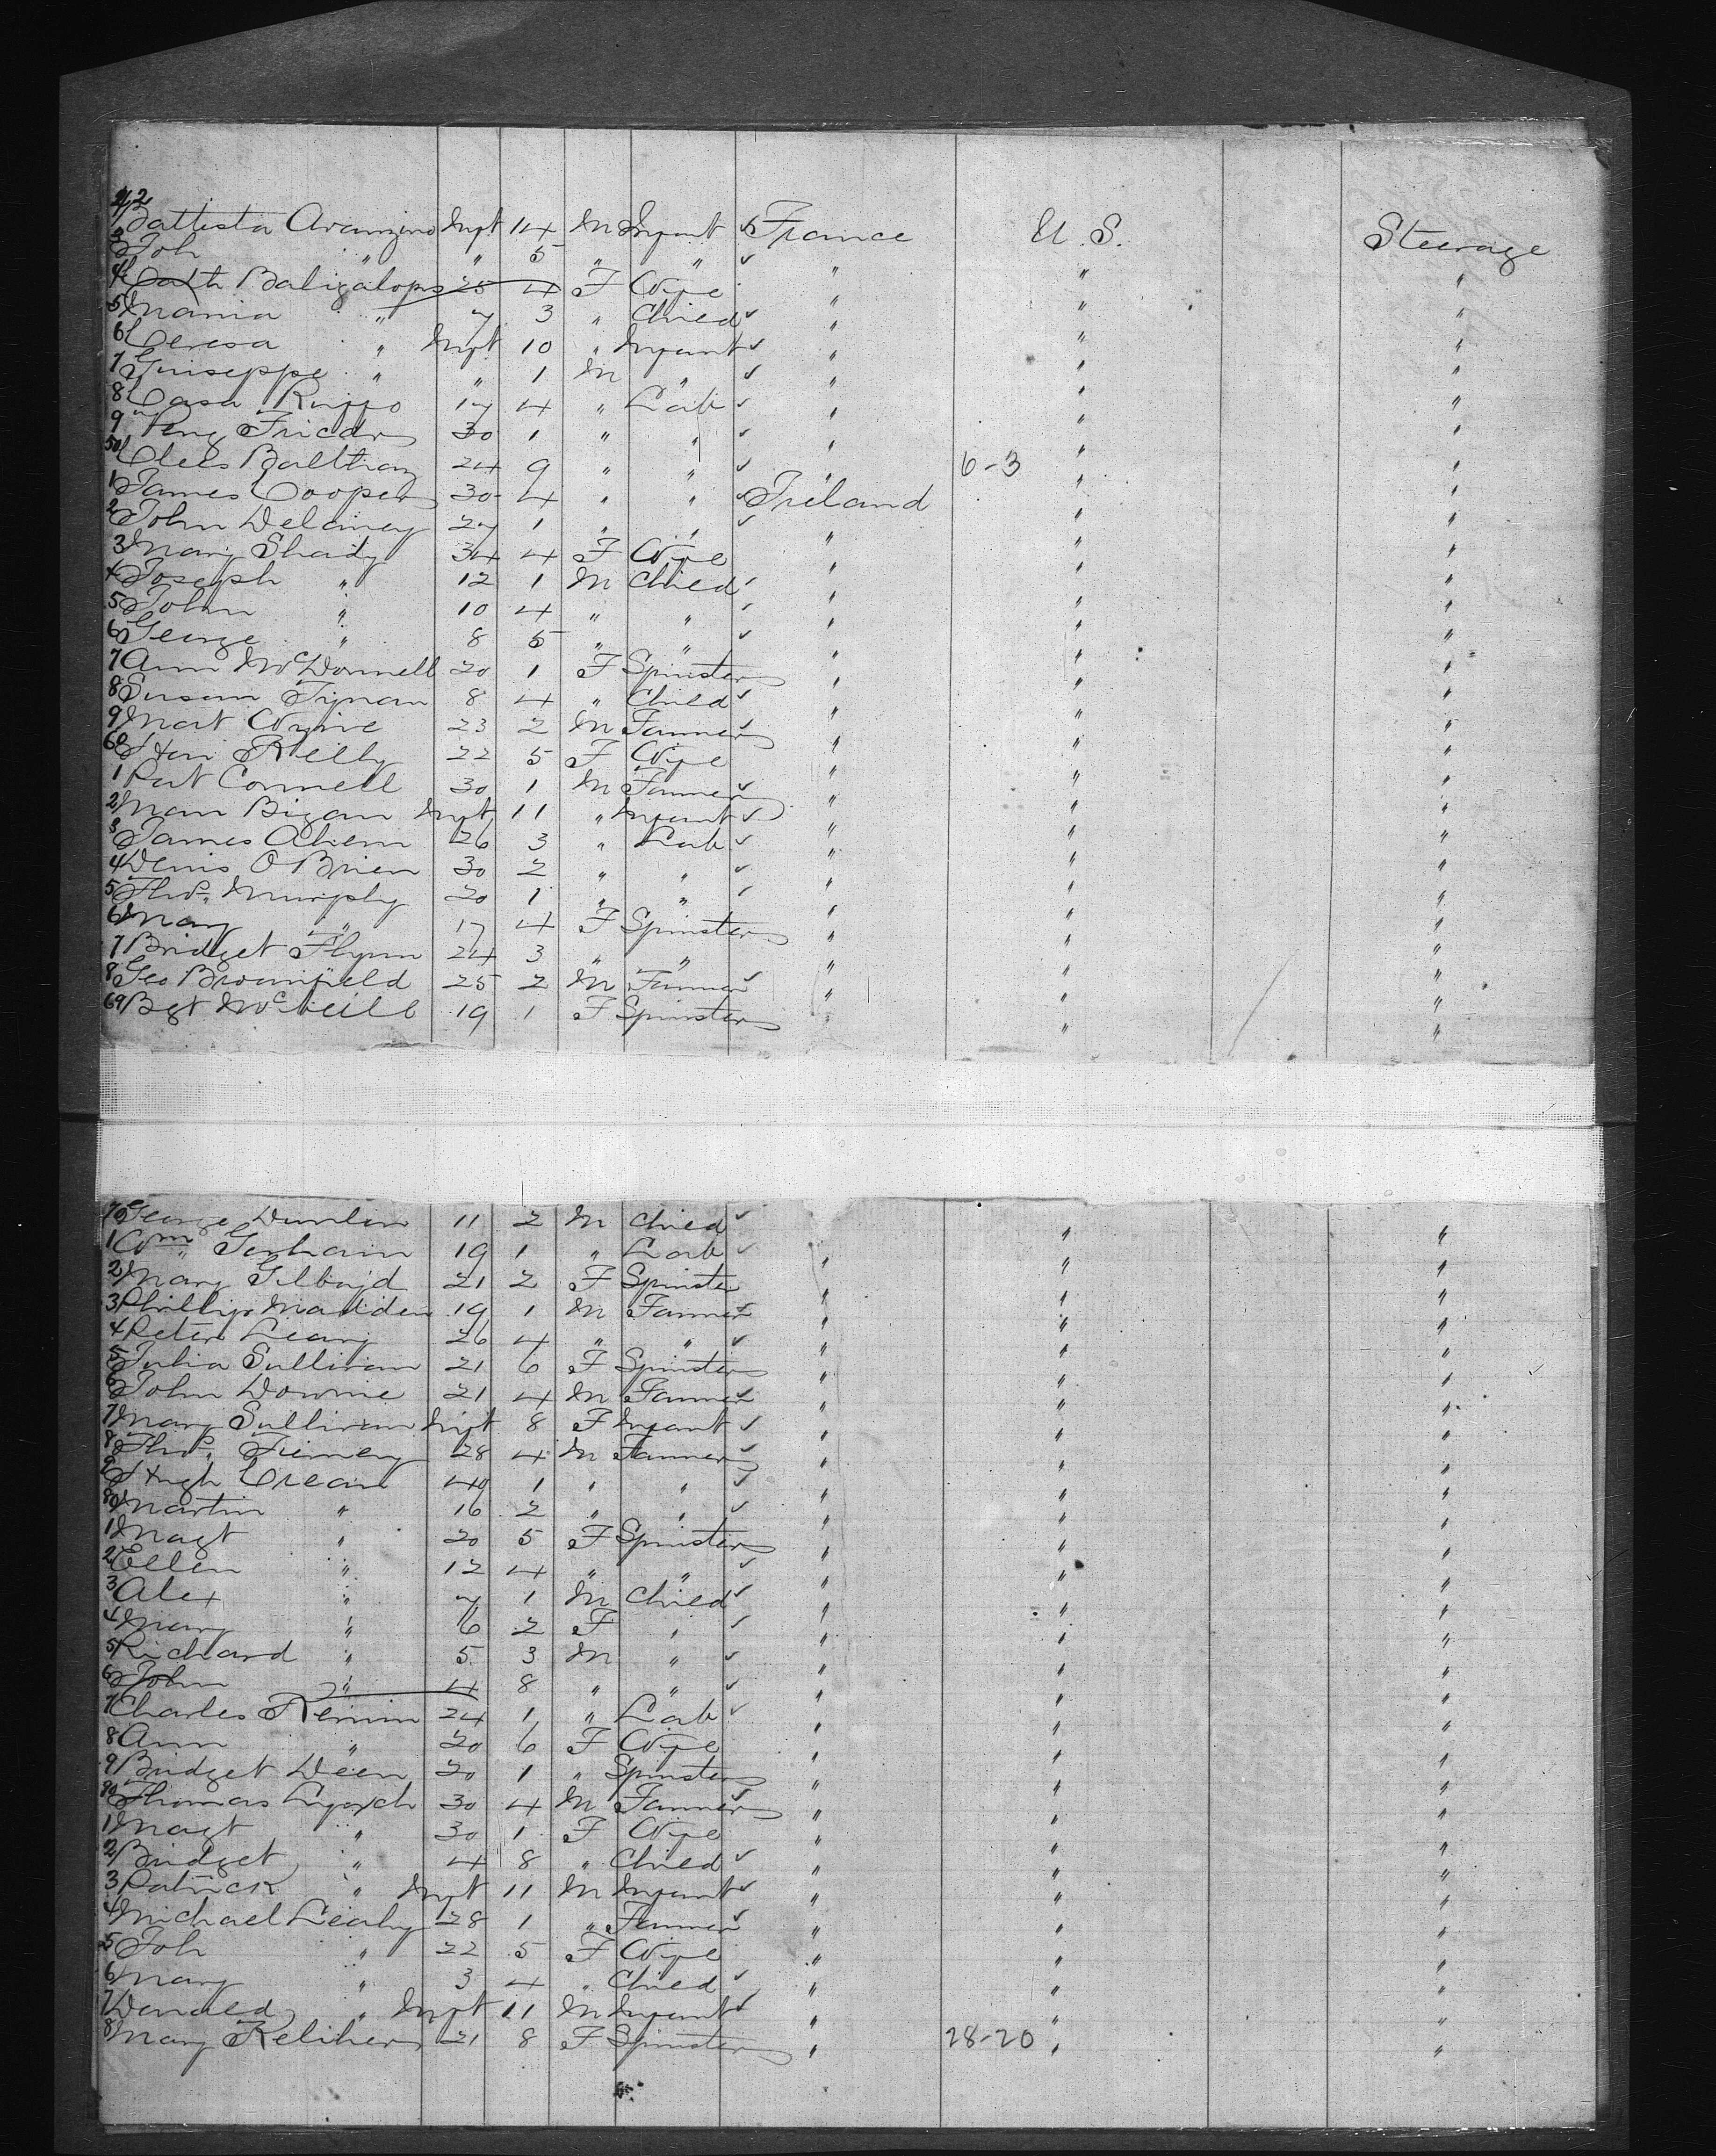 42 Battista Avanzino Inft 14 M Infant ✓ France U.S. Steerage
3 Joh " " 5 " " ✓ " " "
4 Cath Baligalops 25 4 F Wife " " "
5 Maria " 7 3 " Child ✓ " " "
6 Ceresa " Inft 10 " Infant ✓ " " "
7 Guiseppe " " 1 M " ✓ " " "
8 Casa 17 4 " Lab ✓ " " "
9 30 1 " " ✓ " " "
50 24 9 " " ✓ " 6-3 " "
1 James Cooper 30 4 " " ✓ Ireland " "
2 John Delaney 27 1 " " ✓ " " "
3 Mary Shady 34 4 F Wife " " "
4 Joseph " 12 1 M Child ✓ " " "
5 John " 10 4 " " ✓ " " "
6 George " 8 5 " " ✓ " " "
7 Ann McDonnell 20 1 F Spinster " " "
8 Susan Tynan 8 4 " Child ✓ " " "
9 Mat Wynne 23 2 M Farmer ✓ " " "
60 Han Reilly 22 5 F Wife " " "
1 Pat Connell 30 1 M Farmer ✓ " " "
2 Mam Bigam Inft 11 " Infant ✓ " " "
3 James Ahern 26 3 " Lab ✓ " " "
4 Denis O Brien 30 2 " " ✓ " " "
5 Thos. Murphy 20 1 " " ✓ " " "
6 Mary " 17 4 F Spinster " " "
7 Bridget Flynn 24 3 " " " " "
8 Geo Brownfield 25 2 M Farmer ✓ " " "
69 Bgt McNeill 19 1 F Spinster " " "
70 George Dunlin 11 2 M Child ✓ " "
1 Wm Gorham 19 1 " Lab ✓ " " "
2 Mary 21 2 F Spinster " " "
3 Phillip Madden 19 1 M Farmer ✓ " " "
4 Peter Leary 26 4 " " ✓ " " "
5 Julia Sullivan 21 6 F Spinster " " "
6 John Downie 21 4 M Farmer ✓ " " "
7 Mary Sullivan Inft 8 F Infant ✓ " " "
8 Thos. Tierney 28 4 M Farmer ✓ " " "
9 Hugh Crean 40 1 " " ✓ " " "
80 Martin " 16 2 " " ✓ " " "
1 Magt " 20 5 F Spinster " " "
2 Ellen " 12 4 " " ✓ " " "
3 Alex " 7 1 M Child ✓ " " "
4 Mary " 6 2 F " ✓ " " "
5 Richard " 5 3 M " ✓ " " "
6 John " 11 8 " " ✓ " " "
7 Charles 24 1 " Lab ✓ " " "
8 Ann " 20 6 F Wife " " "
9 Bridget Deen 20 1 " Spinster " " "
90 Thomas Lynch 30 4 M Farmer ✓ " " "
1 Magt " 30 1 F Wife " " "
2 Bridget " 4 8 " Child ✓ " " "
3 Patrick " Inft 11 M Infant ✓ " " "
4 Michael Leahy 28 1 " Farmer ✓ " " "
5 Joh " 22 5 F Wife " " "
6 Mary " 3 4 " Child ✓ " " "
7 Donald " Inft 11 M Infant ✓ " " "
8 Mary Keliher 21 8 F Spinster " 28-20 " "